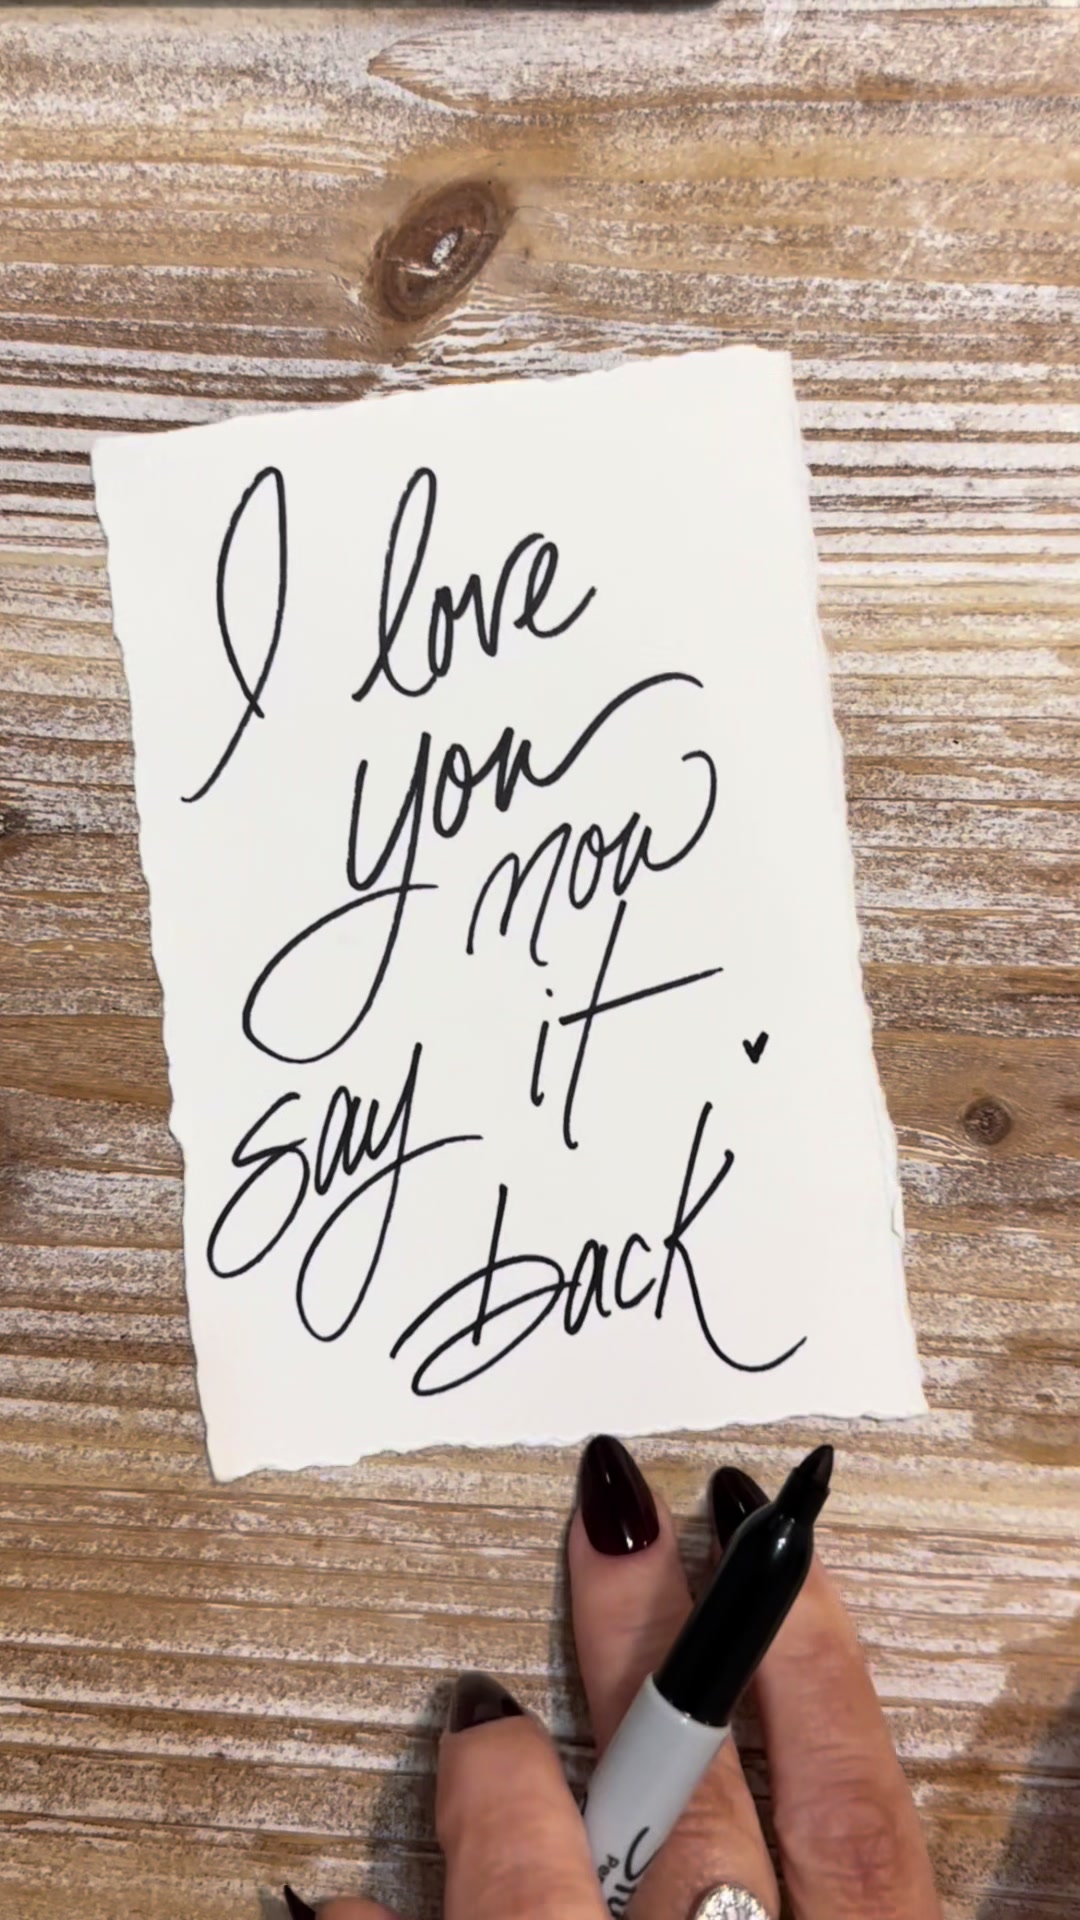 I love
you now
say it
back